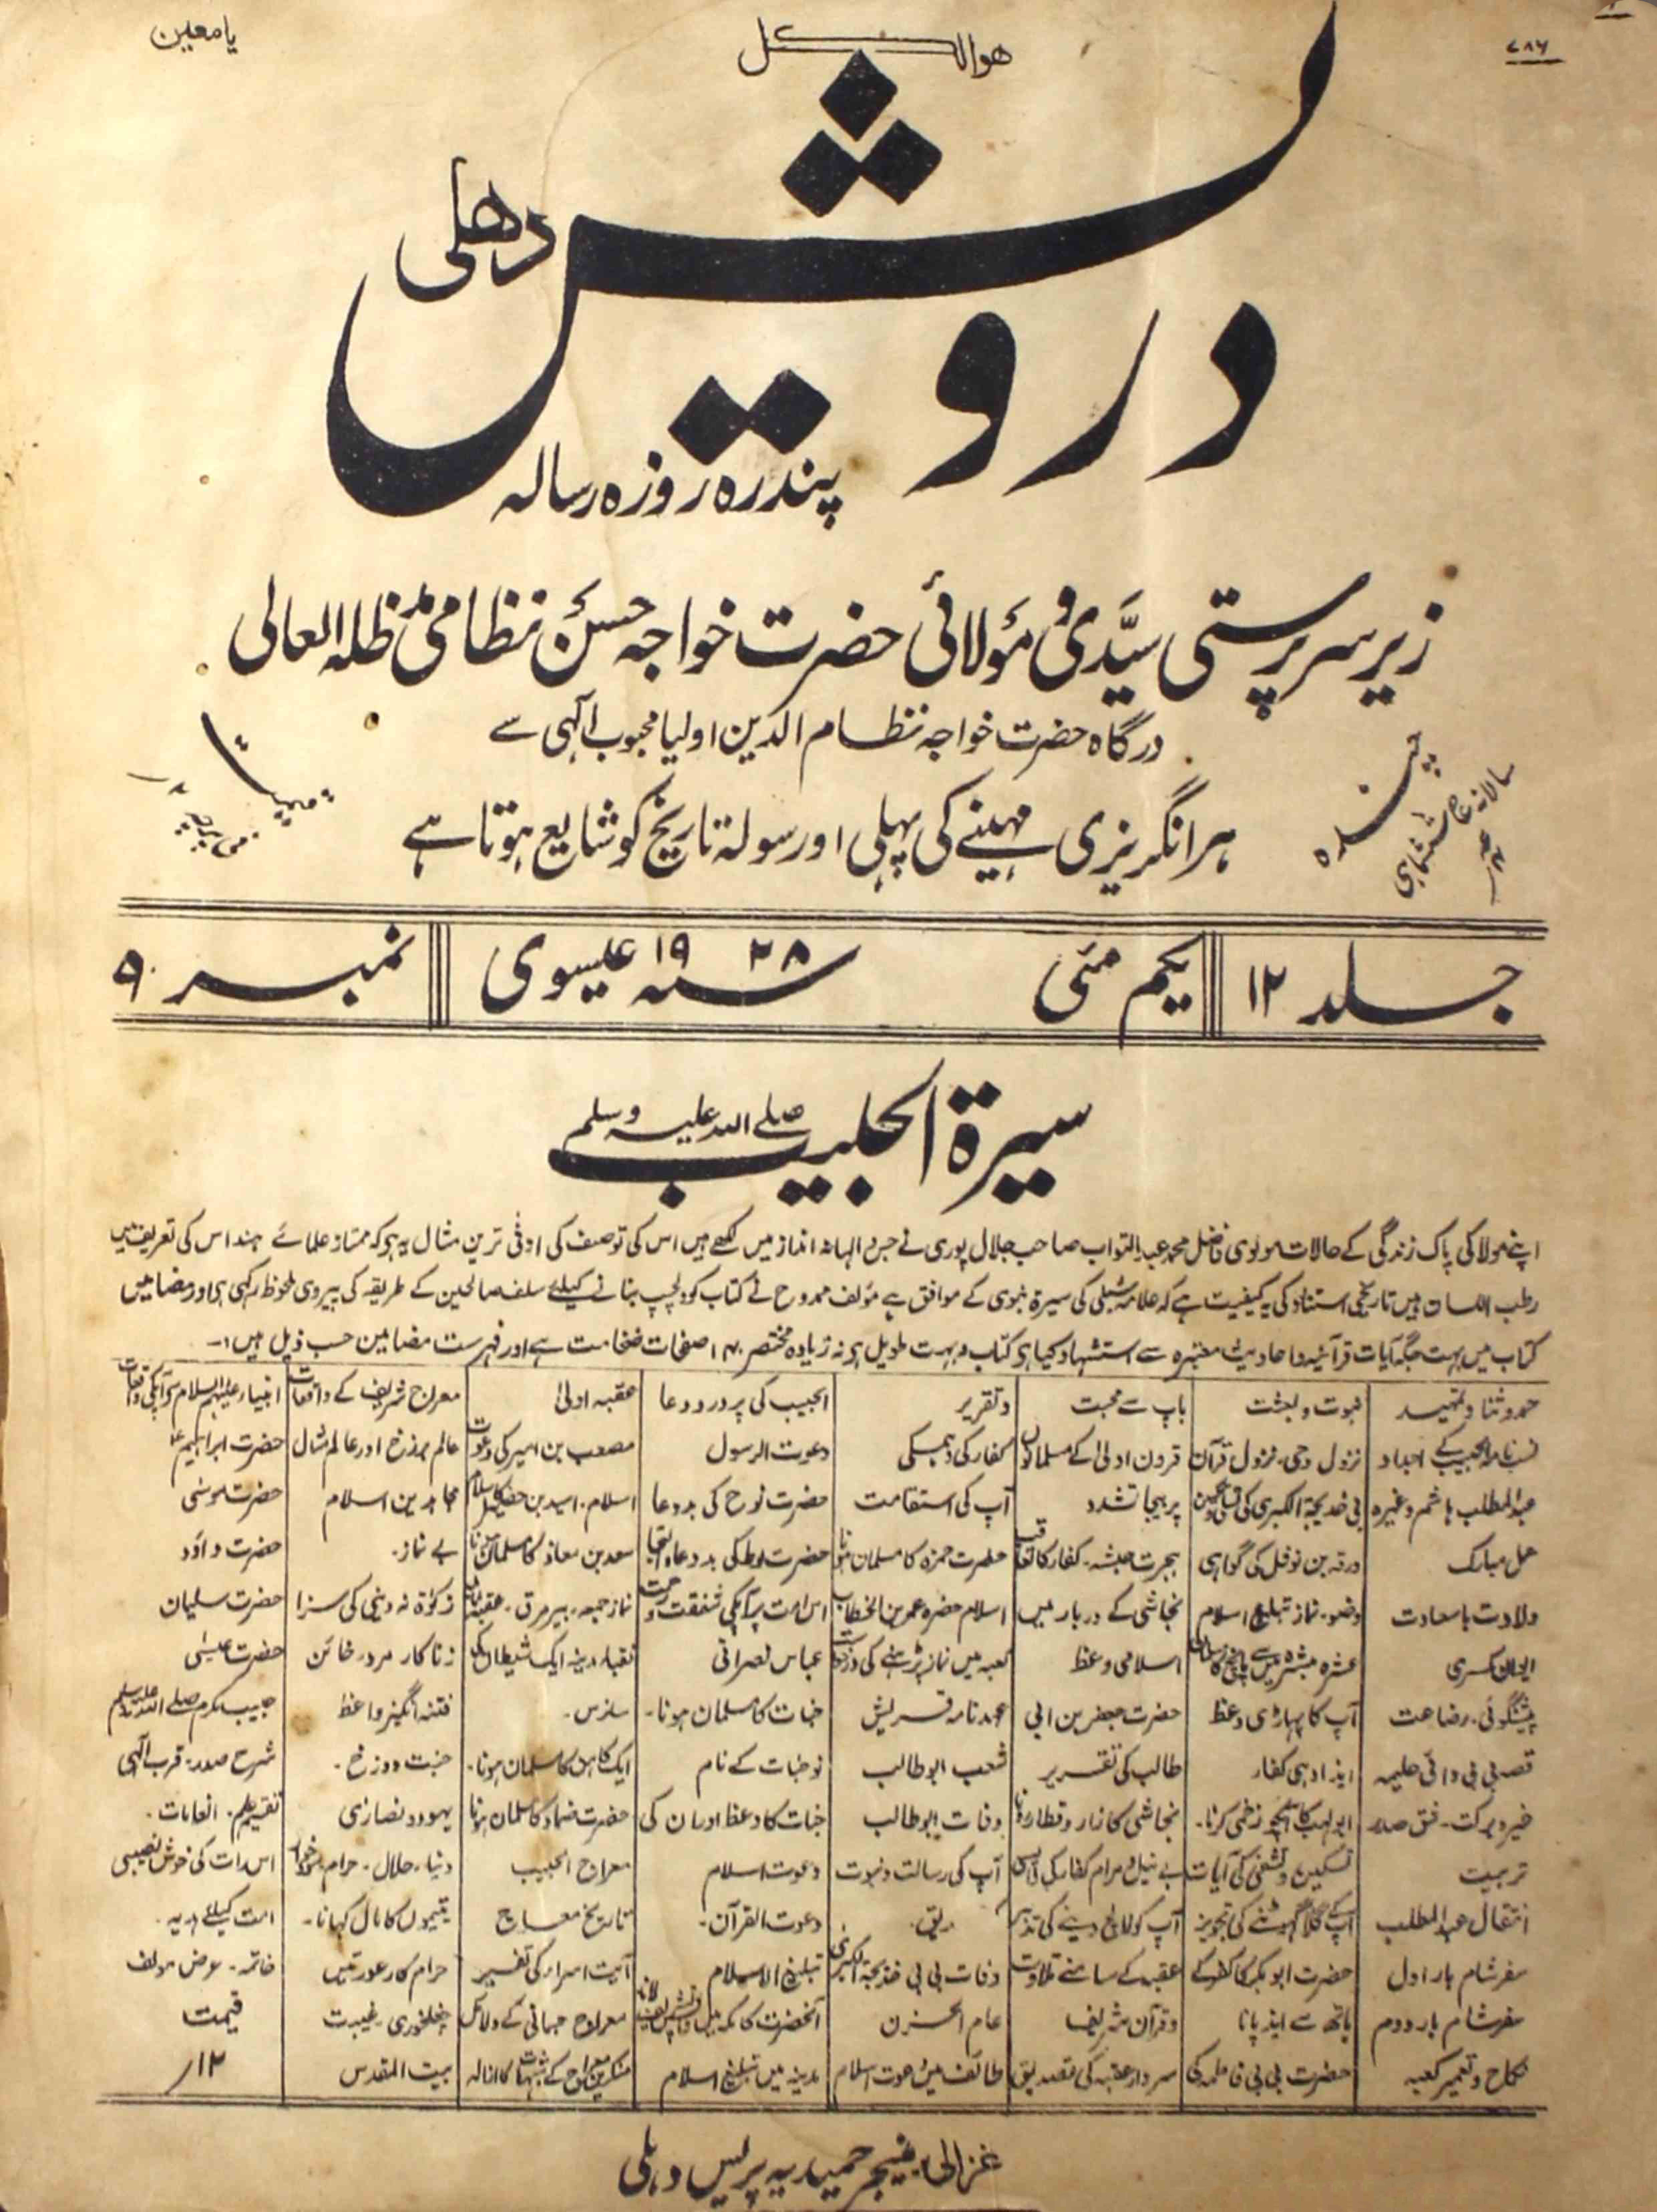 ۷۸۶
ھوالکل
یا معین
درویش
دھلی
پندرہ روزہ رسالہ
زیر سرپرستی سیدی و مولائی حضرت خواجہ حسن نظامی مدظلہ العالی
درگاہ حضرت خواجہ نظام الدین اولیا محبوب الٰہی سے
ہر انگریزی مہینے کی پہلی اور سولہ تاریخ کو شایع ہوتا ہے
چندہ
سالانہ
ششماہی
قیمت
فی پرچہ
جلد ۱۲
یکم مئی ۱۹۲۸ سنہ عیسوی
نمبر ۹
سیرۃ الحبیب صلے اللہ علیہ وسلم
اپنے مولا کی پاک زندگی کے حالات مولوی فاضل محمد عبدالتواب صاحب جلال پوری نے جس والہانہ انداز میں لکھے ہیں اس کی توصیف کی ادنٰی ترین مثال یہ ہی کہ ممتاز علمائے ہند اس کی تعریف میں
رطب اللسان ہیں تاریخی استناد کی یہ کیفیت ہے کہ علامہ شبلی کی سیرۃ نبوی کے موافق ہے مؤلف ممدوح نے کتاب کو دلچسپ بنانے کیلئے سلف صالحین کے طریقہ کی پیروی ملحوظ رکھی ہی اور مضامین
کتاب میں بہت جگہ آیات قرآنیہ و احادیث معتبرہ سے استشہاد کیا ہی کتاب نہ بہت طویل ہی نہ زیادہ مختصر ۱۴۰ صفحات ضخامت ہے اور فہرست مضامین حسب ذیل ہیں :-
حمد و ثنا و تمہید
نسب نامہ الحبیب کے اجداد
عبدالمطلب ہاشم وغیرہ
حمل مبارک
ولادت باسعادت
ایوان کسری
پیشگوئی۔ رضاعت
قصہ بی بی دائی حلیمہ
خیر و برکت۔ شق صدر
تربیت
انتقال عبدالمطلب
سفر شام بار اول
سفر شام بار دوم
نکاح و تعمیر کعبہ
نبوت و بعثت
نزول وحی۔ نزول قرآن
بی بی خدیجۃ الکبری کی
ورقہ بن نوفل کی گواہی
وضو۔ نماز تبلیغ اسلام
عشرہ مبشرہ میں سے پانچ کا
آپ کا پہاڑی وعظ
ایذا دہی کفار
ابولہب کا زخمی کرنا۔
تسکین و تشفی کی آیات
آپ کے گلا گھونٹنے کی تجویز
حضرت ابوبکر کا کفر کے
ہاتھ سے ایذا پانا
حضرت بی بی فاطمہ کی
باپ سے محبت
قرون اولیٰ کے مسلمانوں
پر بیجا تشدد
ہجرت حبشہ۔ کفار کا تعاقب
نجاشی کے دربار میں
اسلامی وعظ
حضرت جعفر بن ابی
طالب کی تقریر
نجاشی کا زار و قطار رونا
بے نیل مرام کفار کی واپسی
آپ کو لالچ دینے کی تدبیر
عقبہ کے سامنے تلاوت
قرآن شریف
سردار عقبہ کی تصدیق
و تقریر
کفار کی دھمکی
آپ کی استقامت
حضرت حمزہ کا مسلمان ہونا
اسلام حضرت عمر بن الخطاب
کعبہ میں نماز پڑھنے کی
عہد نامہ قریش
شعب ابو طالب
وفات ابو طالب
آپ کی رسالت و نبوت
وفات بی بی خدیجۃ الکبری
عام الحزن
طائف میں دعوت اسلام
الحبیب کی پر درد دعا
دعوت الرسول
حضرت نوح کی بددعا
حضرت لوط کی بددعا
اس امت پر آپکی شفقت و رحمت
عباس نصرانی
جنات کا مسلمان ہونا۔
نو جنات کے نام
جنات کا وعظ اور ان کی
دعوت اسلام
دعوت القرآن۔
تبلیغ الاسلام
آنحضرت کا مکہ میں واپس تشریف لانا
مدینہ میں تبلیغ اسلام
عقبہ اولیٰ
مصعب بن عمیر کی دعوت
اسلام۔ اسید بن حضیر کا اسلام
سعد بن معاذ کا مسلمان ہونا
نماز جمعہ۔
نقباء مدینہ ایک شیطان کی
سازس۔
ایک کاہن کا مسلمان ہونا۔
حضرت ضماد کا مسلمان ہونا
معراج الحبیب
تاریخ معراج
آیت اسرار کی تفسیر
معراج جسمانی کے دلائل
منکرین معراج کے شبہات کا ازالہ
معراج شریف کے واقعات
عالم برزخ اور عالم مثال
مجاہدین اسلام
بے نماز۔
زکوٰۃ نہ دینے کی سزا
زناکار مرد۔ خائن
فتنہ انگیز واعظ
جنت دوزخ۔
یہود و نصاریٰ
دنیا۔ حلال۔ حرام
یتیموں کا مال کھانا۔
حرام کار عورتیں
چغلخوری۔ غیبت
بیت المقدس
انبیاء علیہم السلام
حضرت ابراہیم
حضرت موسٰی
حضرت داؤد
حضرت سلیمان
حضرت عیسٰی
حبیب مکرم صلے اللہ علیہ وسلم
شرح صدر۔ قرب الٰہی
تقسیم علم۔ انعامات۔
اس رات کی خوش نصیبی
امت کیلئے ہدیہ۔
خاتمہ۔ عرض مولف
قیمت
۱۲؍
غزالی منیجر حمیدیہ پریس دہلی